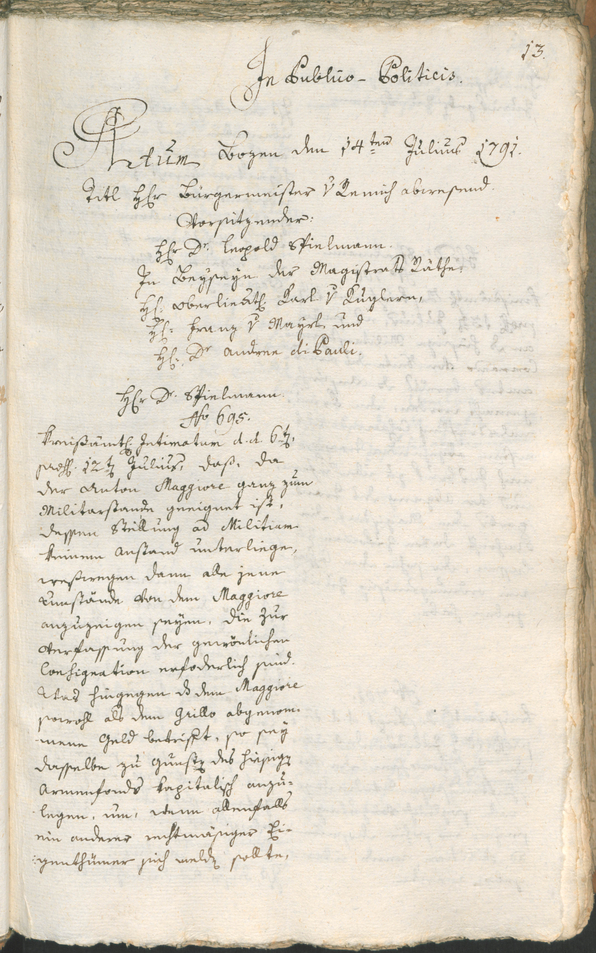 13.
In Publico-Politicis.
Actum Bozen den 14ten Julius 1791.
Titl Hr Bürgermeister v Remich abwesend.
Vorsitzender:
Hr Dr. Leopold Spielmann
In Beyseyn der Magistrats Räthe
H: Oberlieut: Karl v Kuglern,
H: Franz v Mayrl und
H: Dr Andree di Pauli.
Hr Dr. Spielmann.
No 695.
Kreißämtl. Intimatum d.d. 6t,
praes. 12t Julius, daß, da
der Anton Maggiore ganz zum
Militarstande geeignet ist,
dessen Stellung ad Militiam
keinem Anstand unterliege,
weßwegen dann alle jene
Umstände von dem Maggiore
anzuzeigen seyen, die zur
Verfassung der gewönlichen
Consignation erfoderlich sind.
Was hingegen dem Maggiore
sowohl als dem Grillo abgenom-
mene Geld betrifft, so sey
dasselbe zu Gunsten des hiesigen
Armenfonds kapitalisch anzu-
legen, um, wenn allenfalls
ein anderer rechtmäsiger Ei-
genthümer sich melden sollte,